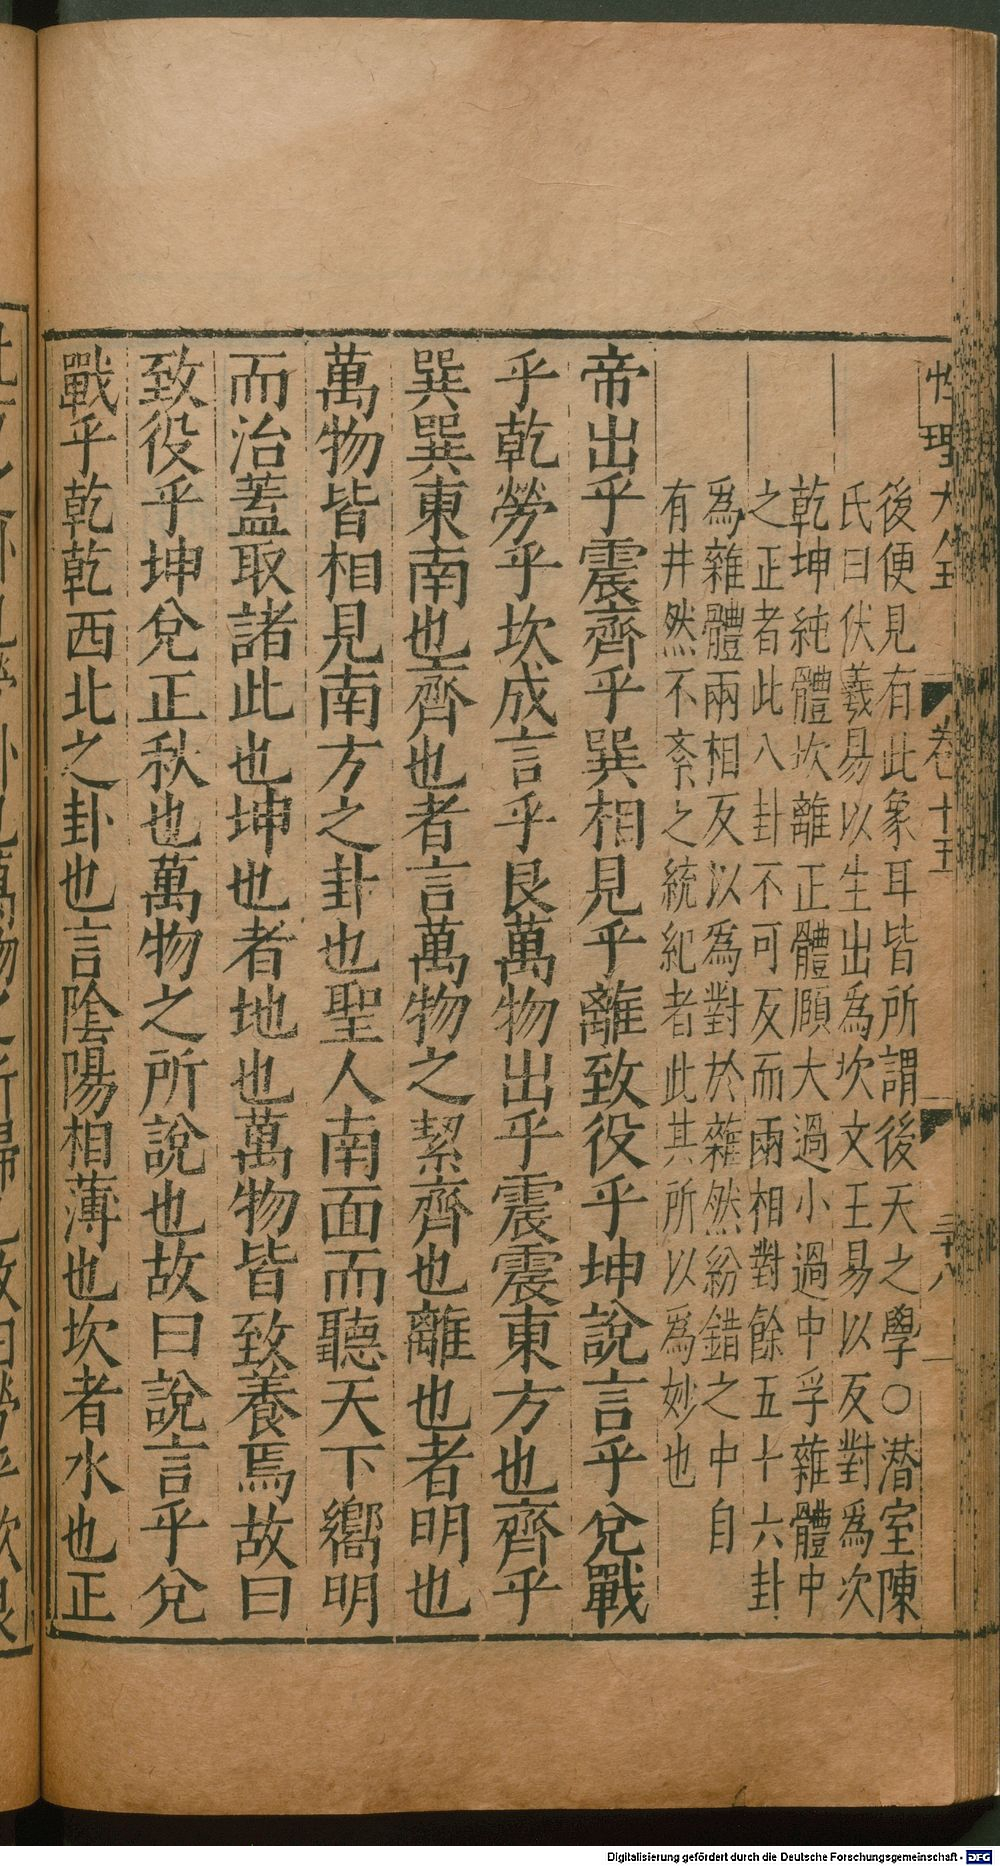 性理大全 卷十五 三十八
後便見有此象耳皆所謂後天之學○潛室陳
氏曰伏羲易以生出為次文王易以反對為次
乾坤純體坎離正體頤大過小過中孚雜體中
之正者此八卦不可反而兩相對餘五十六卦
為雜體兩相反以為對於雜然紛錯之中自
有井然不紊之統紀者此其所以為妙也
帝出乎震齊乎巽相見乎離致役乎坤說言乎兌戰
乎乾勞乎坎成言乎艮萬物出乎震震東方也齊乎
巽巽東南也齊也者言萬物之絜齊也離也者明也
萬物皆相見南方之卦也聖人南面而聽天下嚮明
而治蓋取諸此也坤也者地也萬物皆致養焉故曰
致役乎坤兌正秋也萬物之所說也故曰說言乎兌
戰乎乾乾西北之卦也言陰陽相薄也坎者水也正
Digitalisierung gefördert durch die Deutsche Forschungsgemeinschaft - DFG